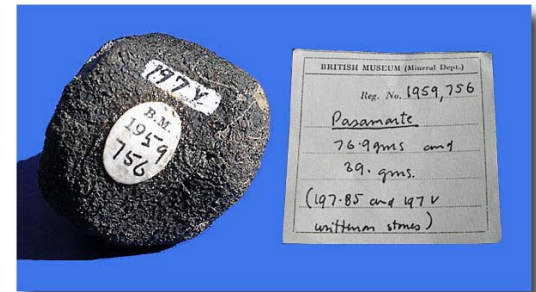 197 V
B.M.
1959
756
BRITISH MUSEUM (Mineral Dept.)
Reg. No. 1959,756
Pasamarte
76.9gms and
39. gms.
(197.85 and 197 V
written on stones)